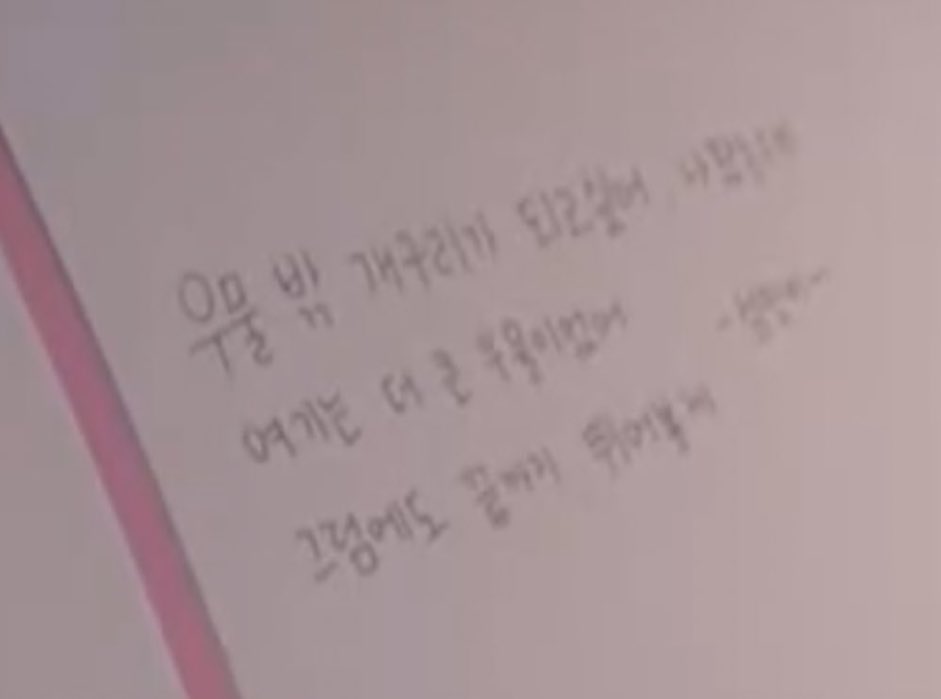 우물 밖 개구리가 되고싶어
여기는 더 큰 우물이었어
그럼에도 끝까지 뛰어볼게